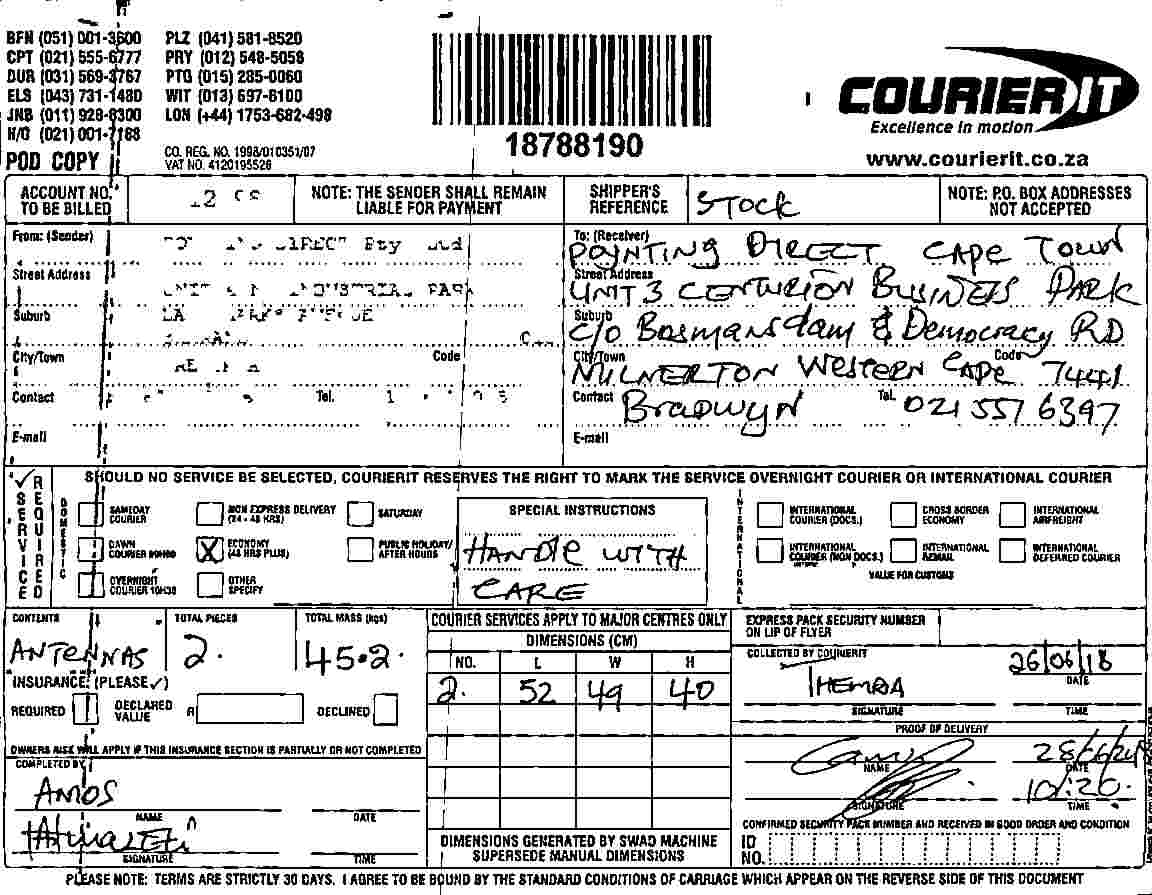 BFN (051) 001-3600 PLZ (041) 581-8520
CPT (021) 555-6777 PRY (012) 548-5058
DUR (031) 569-3767 PTG (015) 285-0060
ELS (043) 731-1480 WIT (013) 697-8100
JNB (011) 928-8300 LON (+44) 1753-682-498
H/O (021) 001-7188
POD COPY
CO. REG. NO. 1998/010351/07
VAT NO. 4120195526
18788190
COURIER IT
Excellence in motion
www.courierit.co.za
ACCOUNT NO. TO BE BILLED
NOTE: THE SENDER SHALL REMAIN LIABLE FOR PAYMENT
SHIPPER'S REFERENCE
STOCK
NOTE: P.O. BOX ADDRESSES NOT ACCEPTED
From: (Sender)
DIRECT Pty Ltd
Street Address
INDUSTRIAL PARK
Suburb
City/Town
Code
Contact
Tel.
E-mail
To: (Receiver)
POYNTING DIRECT CAPE TOWN
Street Address
UNIT 3 CENTURION BUSINESS PARK
Suburb
C/O Bosmansdam & Democracy RD
City/Town Code
MILNERTON WESTERN CAPE 7441
Contact Bradwyn Tel. 021 551 6397
E-mail
SHOULD NO SERVICE BE SELECTED, COURIERIT RESERVES THE RIGHT TO MARK THE SERVICE OVERNIGHT COURIER OR INTERNATIONAL COURIER
✓ SERVICE REQUIRED
DOMESTIC
SAMEDAY COURIER
NON EXPRESS DELIVERY (24 - 48 HRS)
SATURDAY
DAWN COURIER
X ECONOMY (48 HRS PLUS)
PUBLIC HOLIDAY/ AFTER HOURS
OVERNIGHT COURIER 10H30
OTHER SPECIFY
SPECIAL INSTRUCTIONS
HANDLE WITH
CARE
INTERNATIONAL
INTERNATIONAL COURIER (DOCS.)
CROSS BORDER ECONOMY
INTERNATIONAL AIRFREIGHT
INTERNATIONAL COURIER (NON DOCS.)
INTERNATIONAL REMAIL
INTERNATIONAL DEFERRED COURIER
VALUE FOR CUSTOMS
CONTENTS
ANTENNAS
TOTAL PIECES
2.
TOTAL MASS (kgs)
45.2.
INSURANCE: (PLEASE ✓)
REQUIRED
DECLARED VALUE R
DECLINED
OWNERS RISK WILL APPLY IF THIS INSURANCE SECTION IS PARTIALLY OR NOT COMPLETED
COMPLETED BY
AMOS
NAME DATE
SIGNATURE TIME
COURIER SERVICES APPLY TO MAJOR CENTRES ONLY
DIMENSIONS (CM)
NO. L W H
2. 52 49 40
DIMENSIONS GENERATED BY SWAD MACHINE
SUPERSEDE MANUAL DIMENSIONS
EXPRESS PACK SECURITY NUMBER
ON LIP OF FLYER
COLLECTED BY COURIERIT
THEMBA 26/06/18
DATE
SIGNATURE TIME
PROOF OF DELIVERY
NAME DATE
10:20
SIGNATURE TIME
CONFIRMED SECURITY PACK NUMBER AND RECEIVED IN GOOD ORDER AND CONDITION
ID NO.
PLEASE NOTE: TERMS ARE STRICTLY 30 DAYS. I AGREE TO BE BOUND BY THE STANDARD CONDITIONS OF CARRIAGE WHICH APPEAR ON THE REVERSE SIDE OF THIS DOCUMENT